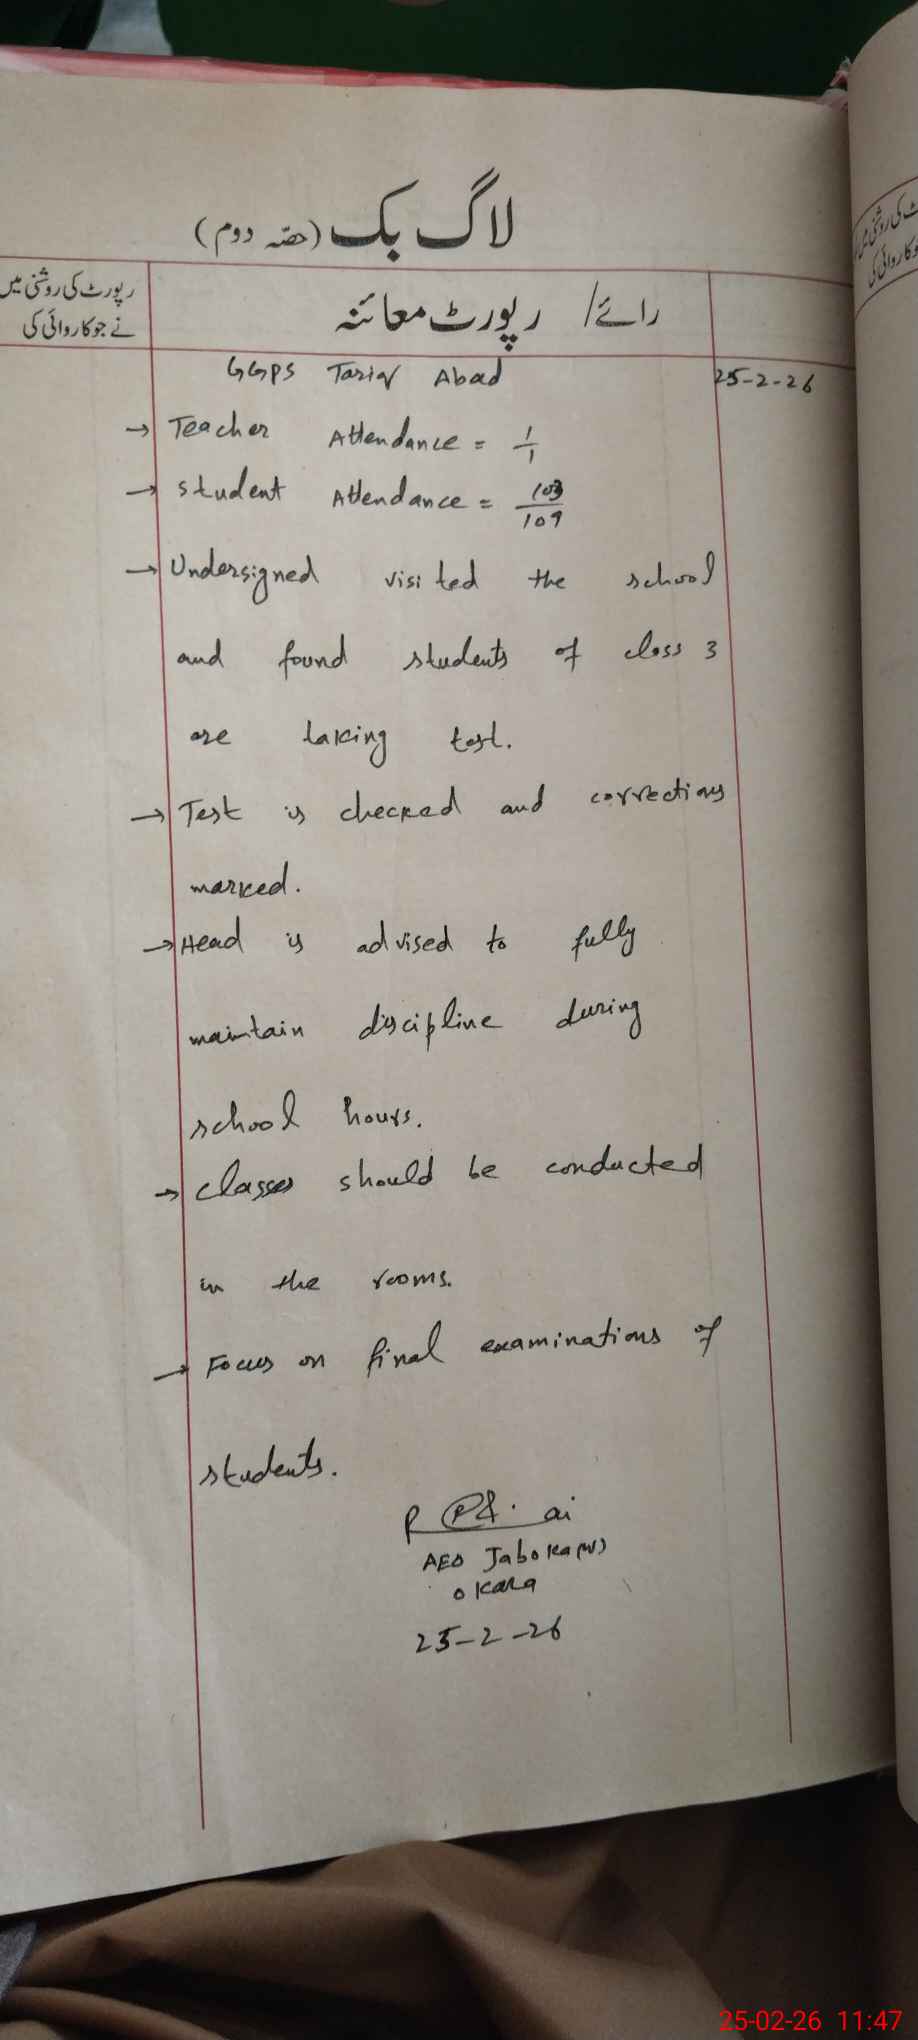 لاگ بک (حصّہ دوم)
رپورٹ کی روشنی میں
نے جو کاروائی کی
رائے / رپورٹ معائنہ
GGPS Tariq Abad 25-2-26
→ Teacher Attendance = 1/1
→ student Attendance = 103/109
→ Undersigned visited the school
and found students of class 3
are taking test.
→ Test is checked and corrections
marked.
→ Head is advised to fully
maintain discipline during
school hours.
→ classes should be conducted
in the rooms.
→ Focus on final examinations of
students.
AEO Jaboka (W)
okara
25-2-26
25-02-26 11:47